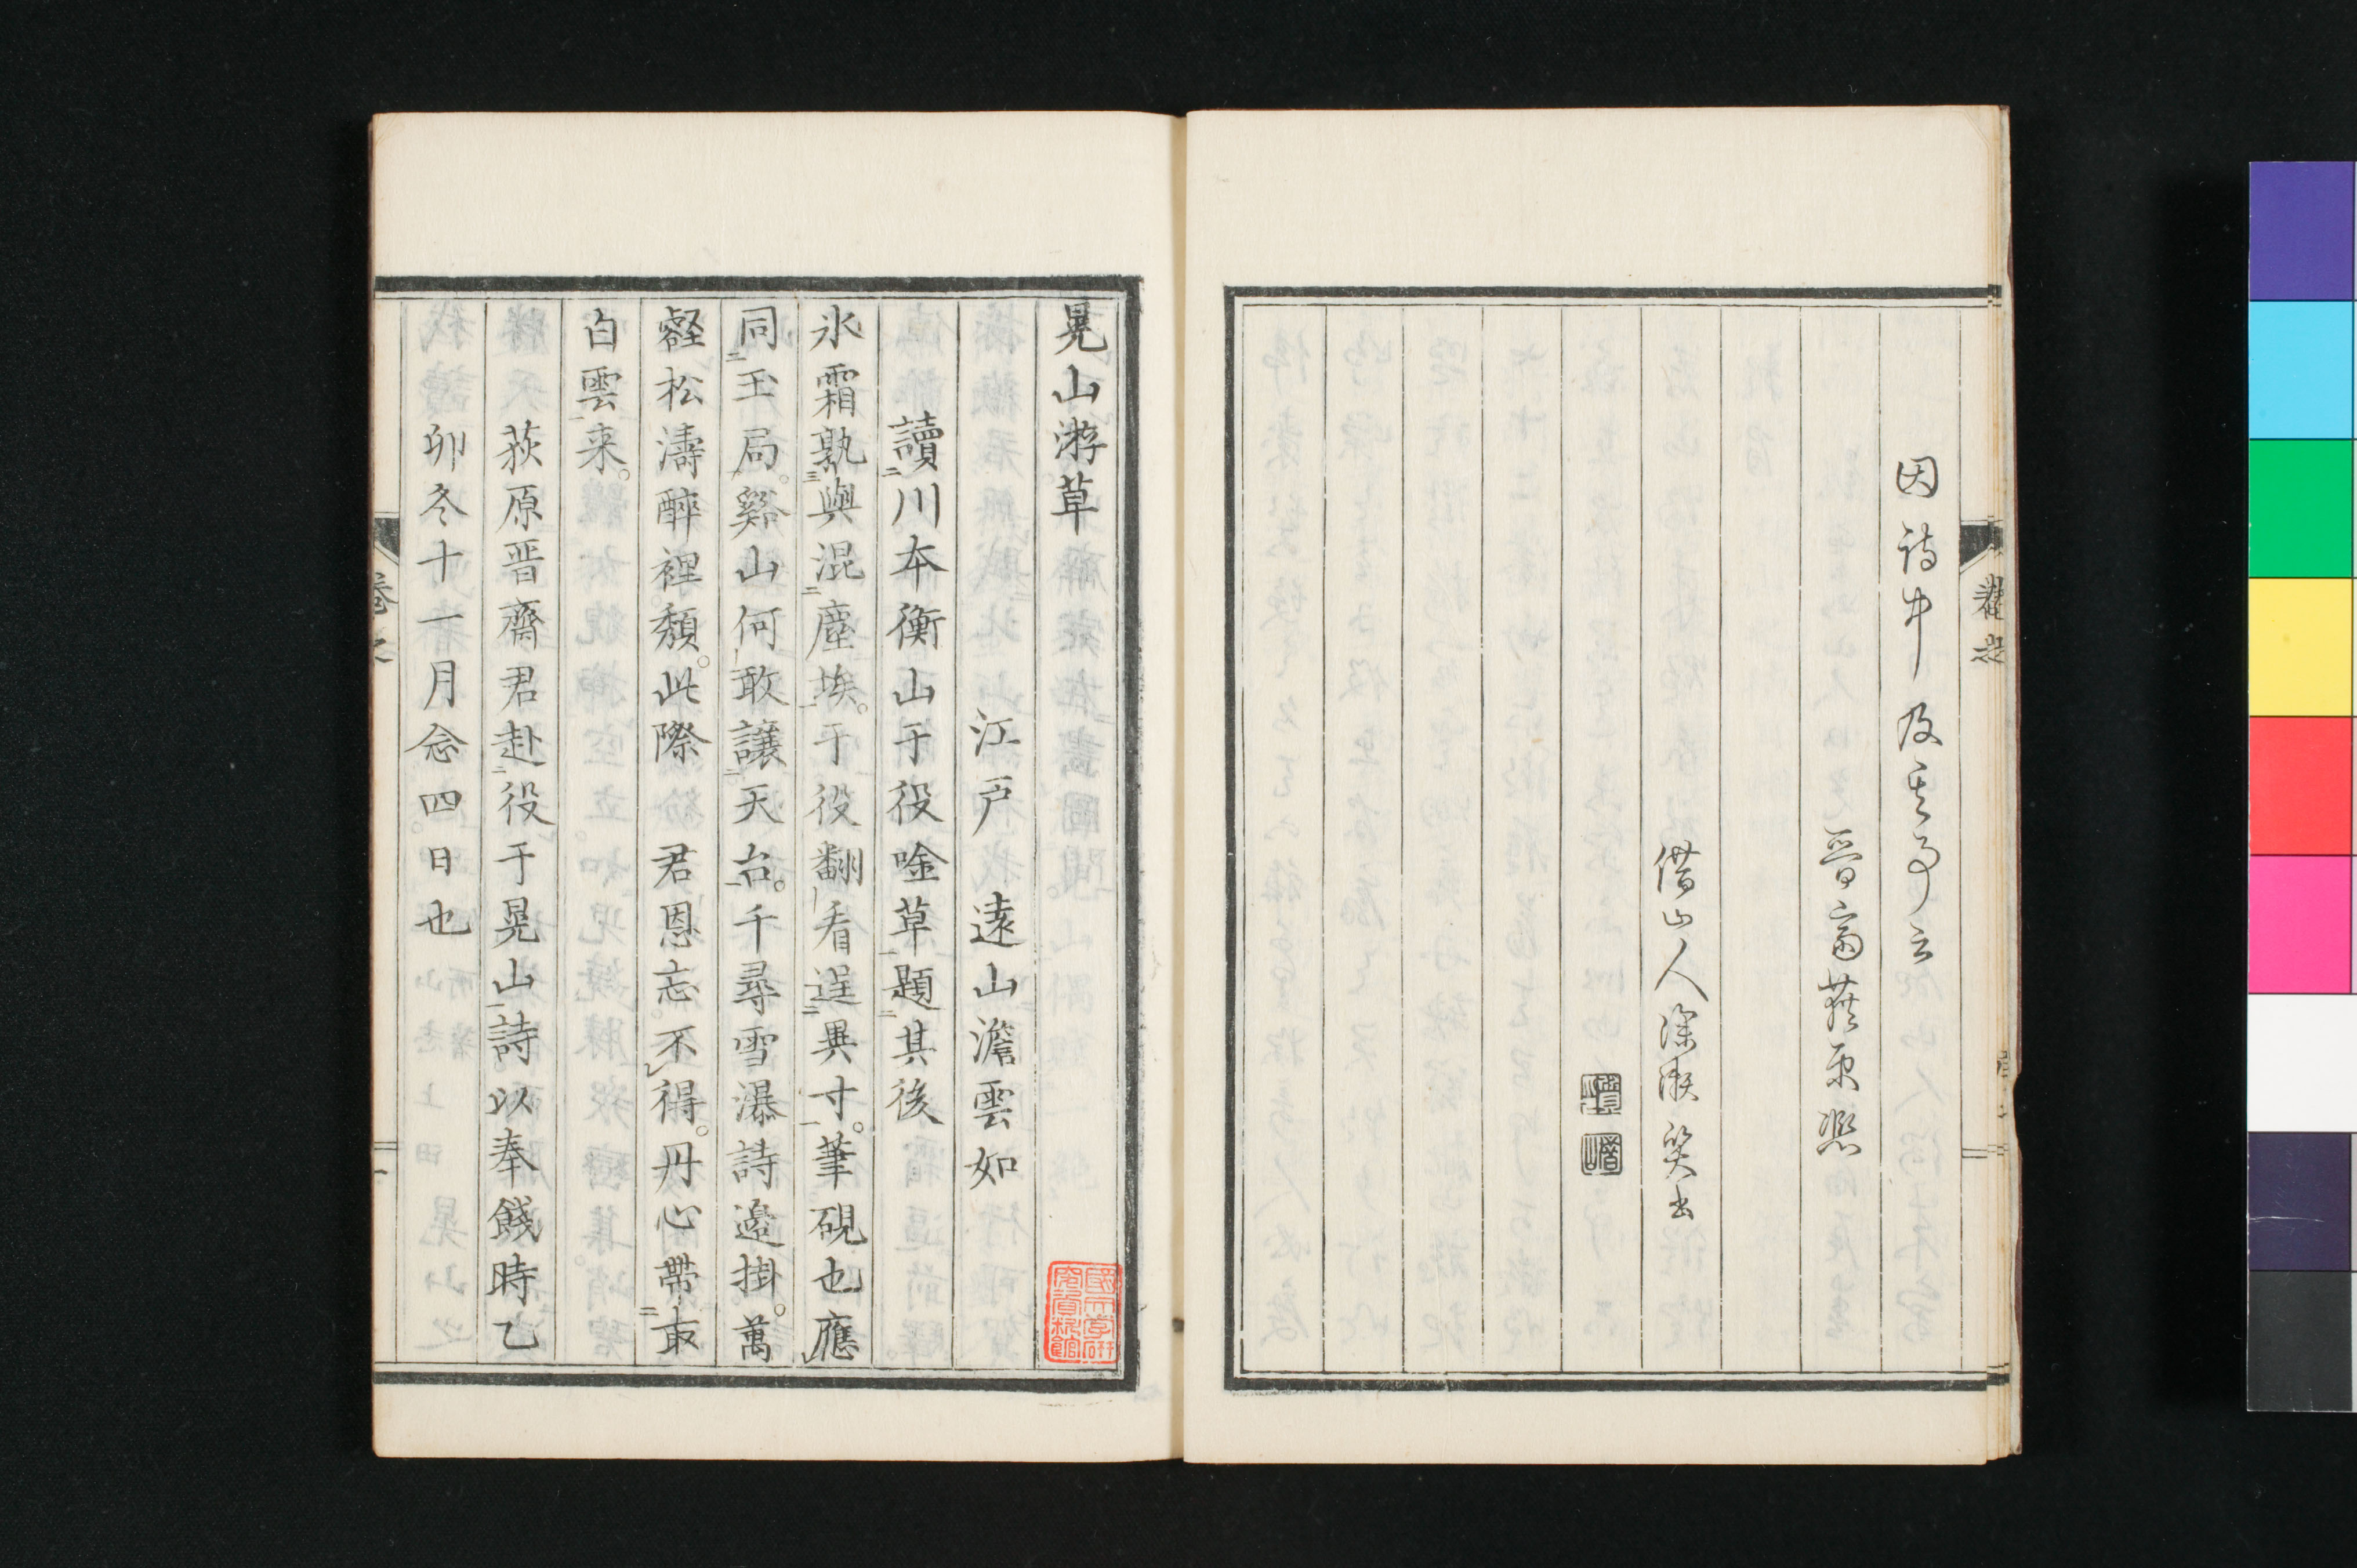 因詩中及其事云
晉齋荻原
借山人深溪笑書
晃山游草
江戸 遠山澹雲如
讀川本衡山于役唫草題其後
氷霜孰與混塵埃。于役翻看逞異才。筆硯也應
同玉局。谿山何敢讓天台。千尋雪瀑詩邊掛。萬
壑松濤醉裡頽。此際君恩忘不得。丹心帶取
白雲来。
荻原晋齋君赴役于晃山詩以奉餞時乙
卯冬十一月念四日也
國文學研究資料館